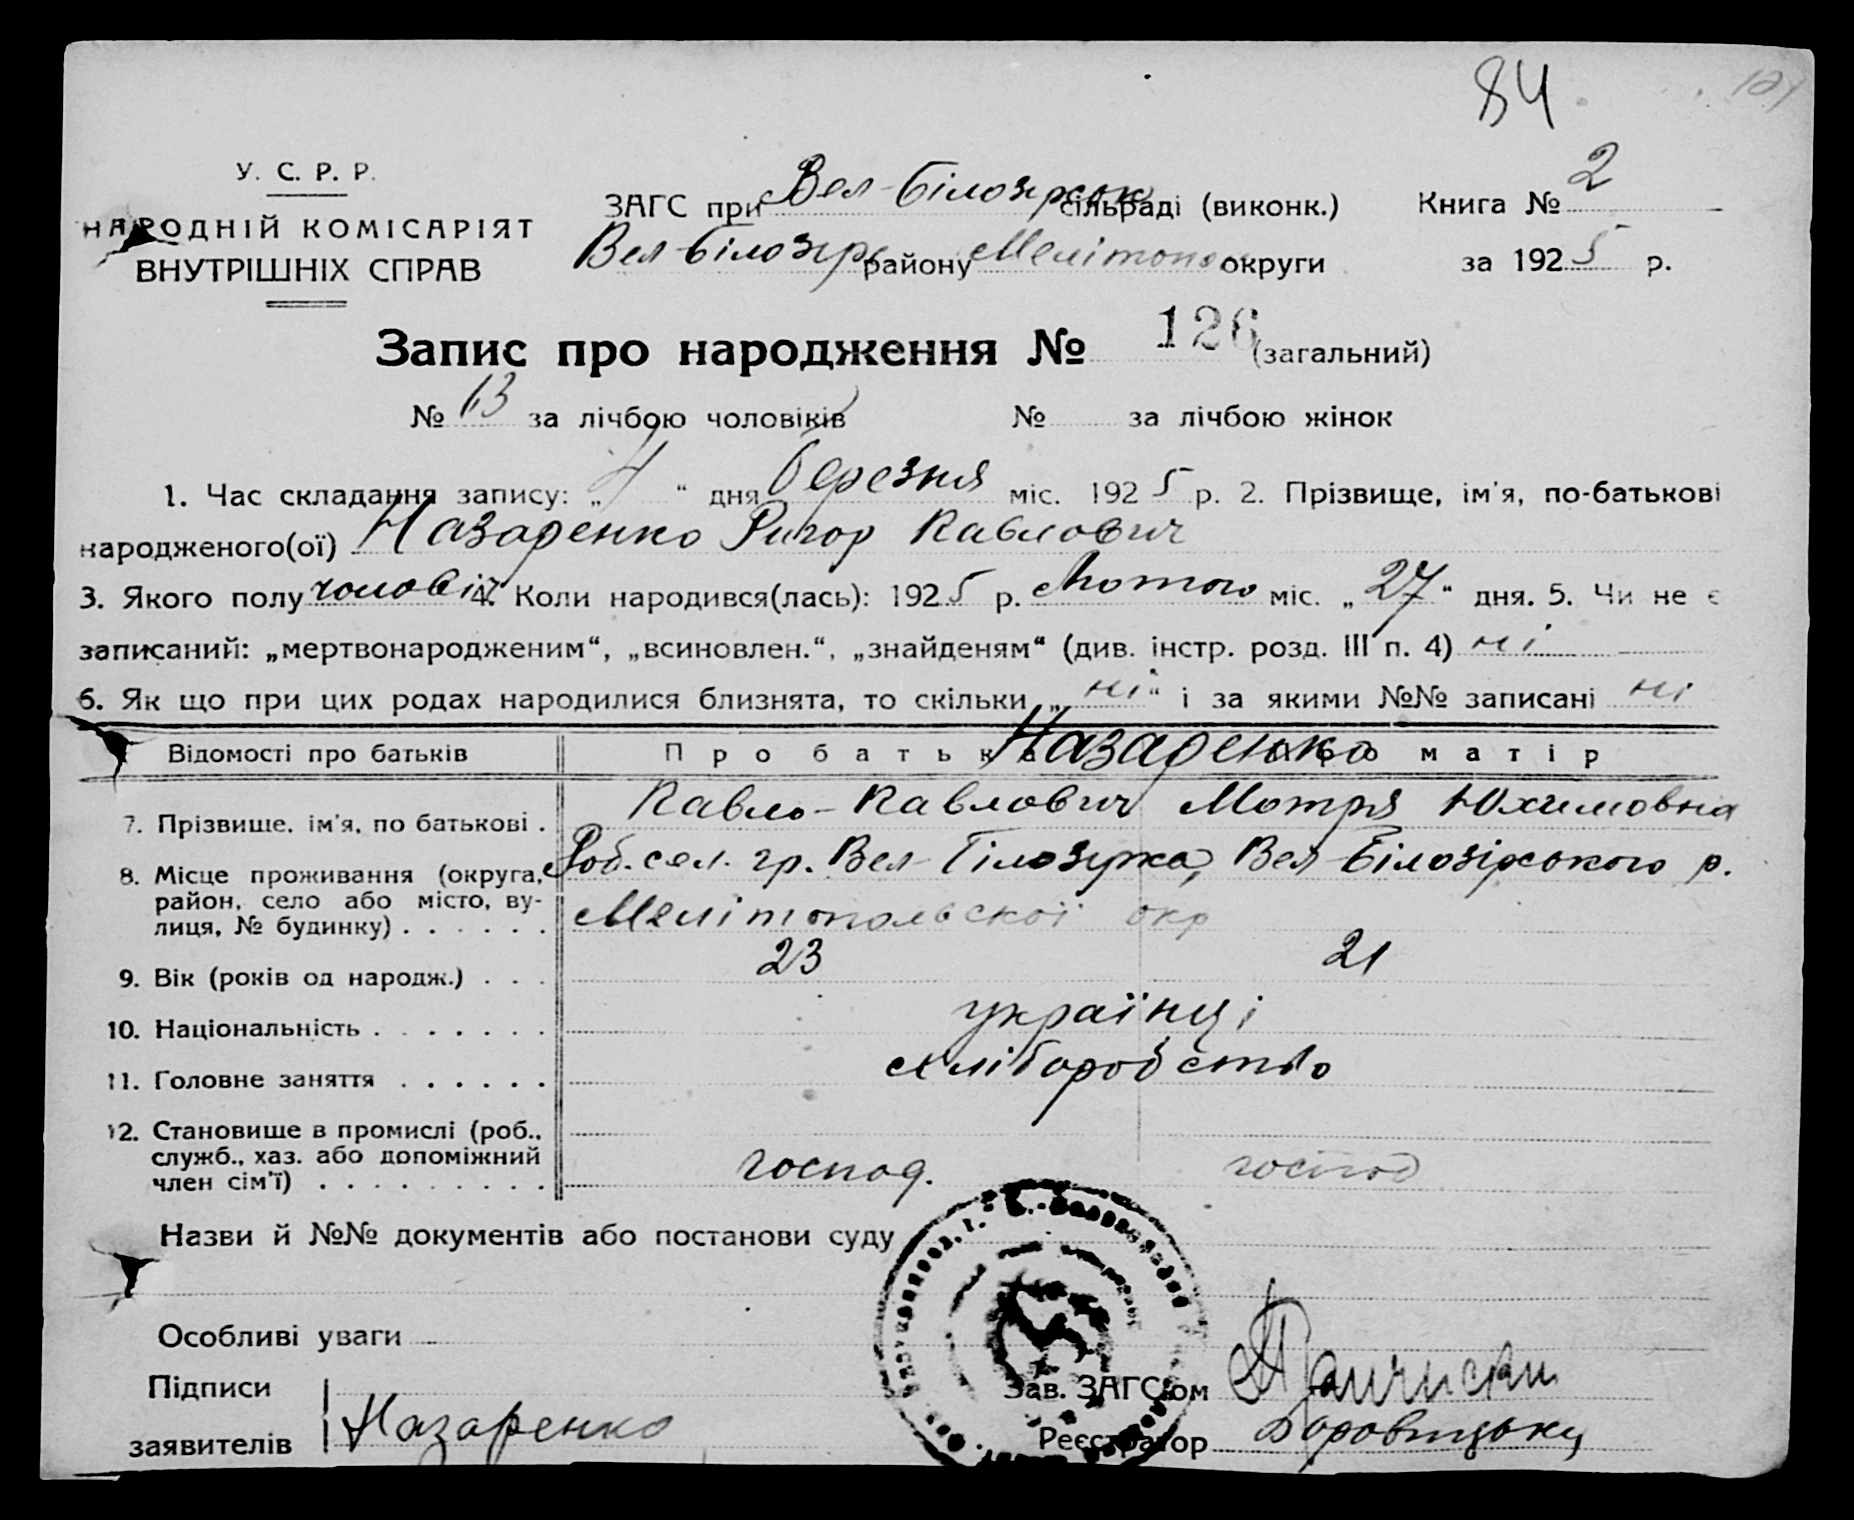 84
У. С. Р. Р.
НАРОДНІЙ КОМІСАРІЯТ
ВНУТРІШНІХ СПРАВ
ЗАГС при Вел-Білозірськ сільраді (виконк.) Книга № 2
Вел-Білозір району Мелітопо округи за 1925 р.
Запис про народження № 126 (загальний)
№ 63 за лічбою чоловіків № за лічбою жінок
1. Час складання запису: „4“ дня березня міс. 1925 р. 2. Прізвище, ім'я, по-батькові
народженого(ої) Назаренко Ригор Павлович
3. Якого полу чоловіч 4. Коли народився(лась): 1925 р. Лютого міс. „27“ дня. 5. Чи не є
записаний: „мертвонародженим“, „всиновлен.“, „знайденям“ (див. інстр. розд. III п. 4) ні
6. Як що при цих родах народилися близнята, то скільки „ні“ і за якими №№ записані ні
Відомості про батьків Про батька Назаренко Про матір
7. Прізвище, ім'я, по батькові . Павло-Павлович Мотря Юхимовна
8. Місце проживання (округа, район, село або місто, вулиця, № будинку) . . . . . . Роб. сел. гр. Вел-Білозірка, Вел-Білозірського р.
Мелітопольської окр
9. Вік (років од народж.) . . . 23 21
10. Національність . . . . . . . українці
11. Головне заняття . . . . . . хліборобство
12. Становище в промислі (роб.,
служб., хаз. або допоміжний
член сім'ї) . . . . . . . . . . господ. господ
Назви й №№ документів або постанови суду
Особливі уваги
Підписи
заявителів Назаренко
Зав. ЗАГС'ом
Реєстратор